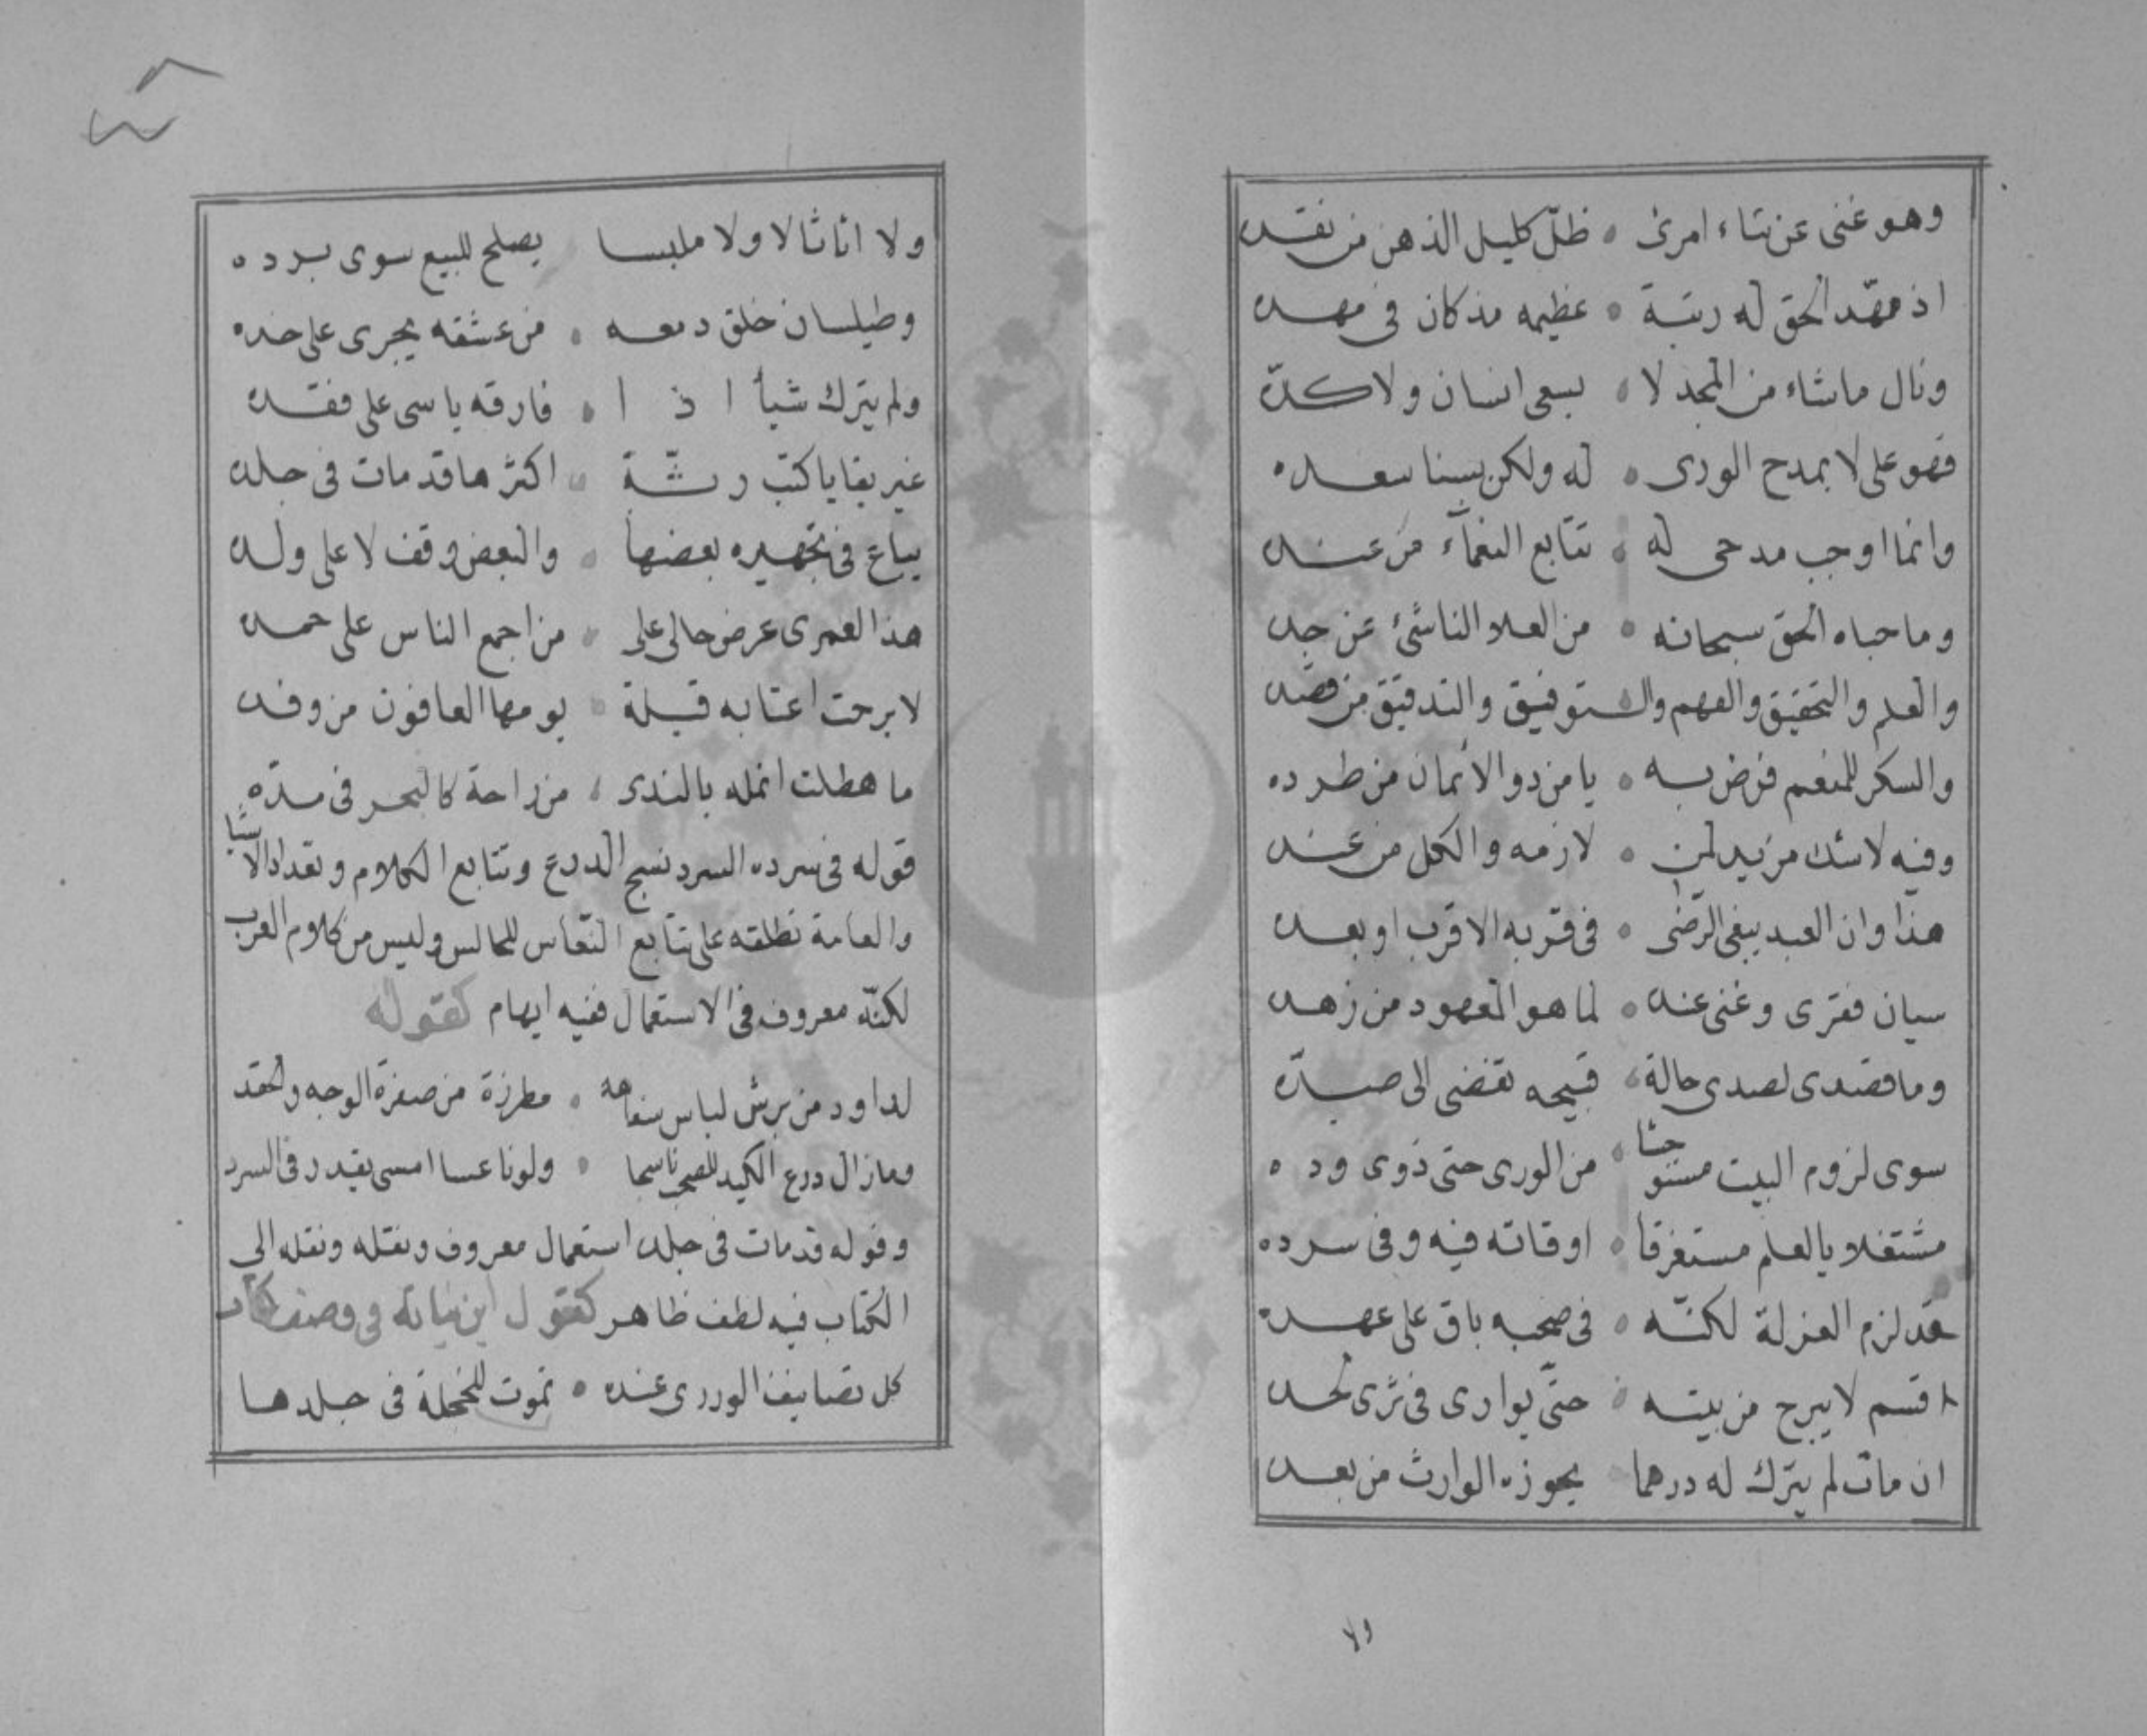 وهو غنى عن ثناء امرئ ظلّ كليل الذهن من نقده
اذ مهّد الحق له رتبة عظيمه مذ كان فى مهده
ونال ماشاء من المجد لا بسعى انسان ولا كدّه
فهو على لا بمدح الورى له ولكن بسنا سعده
وانما اوجب مدحى له تتابع النعمآء من عنده
وما حباه الحق سبحانه من العلا الناشئ عن جده
والعلم والتحقيق والفهم والتوفيق والتدقيق من قصده
والسكر للمنعم فرض به يامن دوالايمان من طرده
وفيه لاشك مزيد لمن لازمه والكل من عنده
هذا وان العبد يبغى الرّضى فى قربه الاقرب او بعده
سيان فقرى وغنى عنده لما هو المعهود من زهده
وما قصدى لصدى حالة قبيحه تقضى الى صدّه
سوى لزوم البيت مستوحشا من الورى حتى ذوى وده
مشتغلا بالعلم مستغرقا اوقاته فيه وفى سرده
قد لزم العزلة لكنّه فى صحبه باق على عهده
اقسم لايبرح من بيته حتّى يوارى فى ثرى لحده
ان مات لم يترك له درهما يحوزه الوارث من بعده
ولا
ولا اثاثا لا ولا ملبسا يصلح للبيع سوى برده
وطيلسان خلق دمعه من عشقه يجرى على خده
ولم يترك شيأ اذا فارقه ياسى على فقده
غير بقايا كتب رثّة اكثرها قد مات فى جلده
يباع فى تجهيزه بعضها والبعض وقف لا على ولده
هذا لعمرى عرض حالى على من اجمع الناس على حمده
لا برحت اعتابه قبلة يومها العافون من وفده
ما هطلت انمله بالندى من راحة كالبحر فى مدّه
قوله فى سرده السرد نسج الدرع وتتابع الكلام وتعداد الاشيا
والعامة تطلقه على تتابع النّعاس للجالس وليس من كلام العرب
لكنّه معروف فى الاستعمال ففيه ايهام كقوله
لداود من برش لباس سفاهة مطرزة من صفرة الوجه والحقد
ومازال درع الكيد للصحب ناسجا ولو ناعسا امسى يقدر فى السرد
وقوله قد مات فى جلده استعمال معروف ونقله ونقله الى
الكتاب فيه لطف ظاهر كقول ابن نباتة فى وصف كتاب
كل تصانيف الورى عنده تموت للخجلة فى جلدها